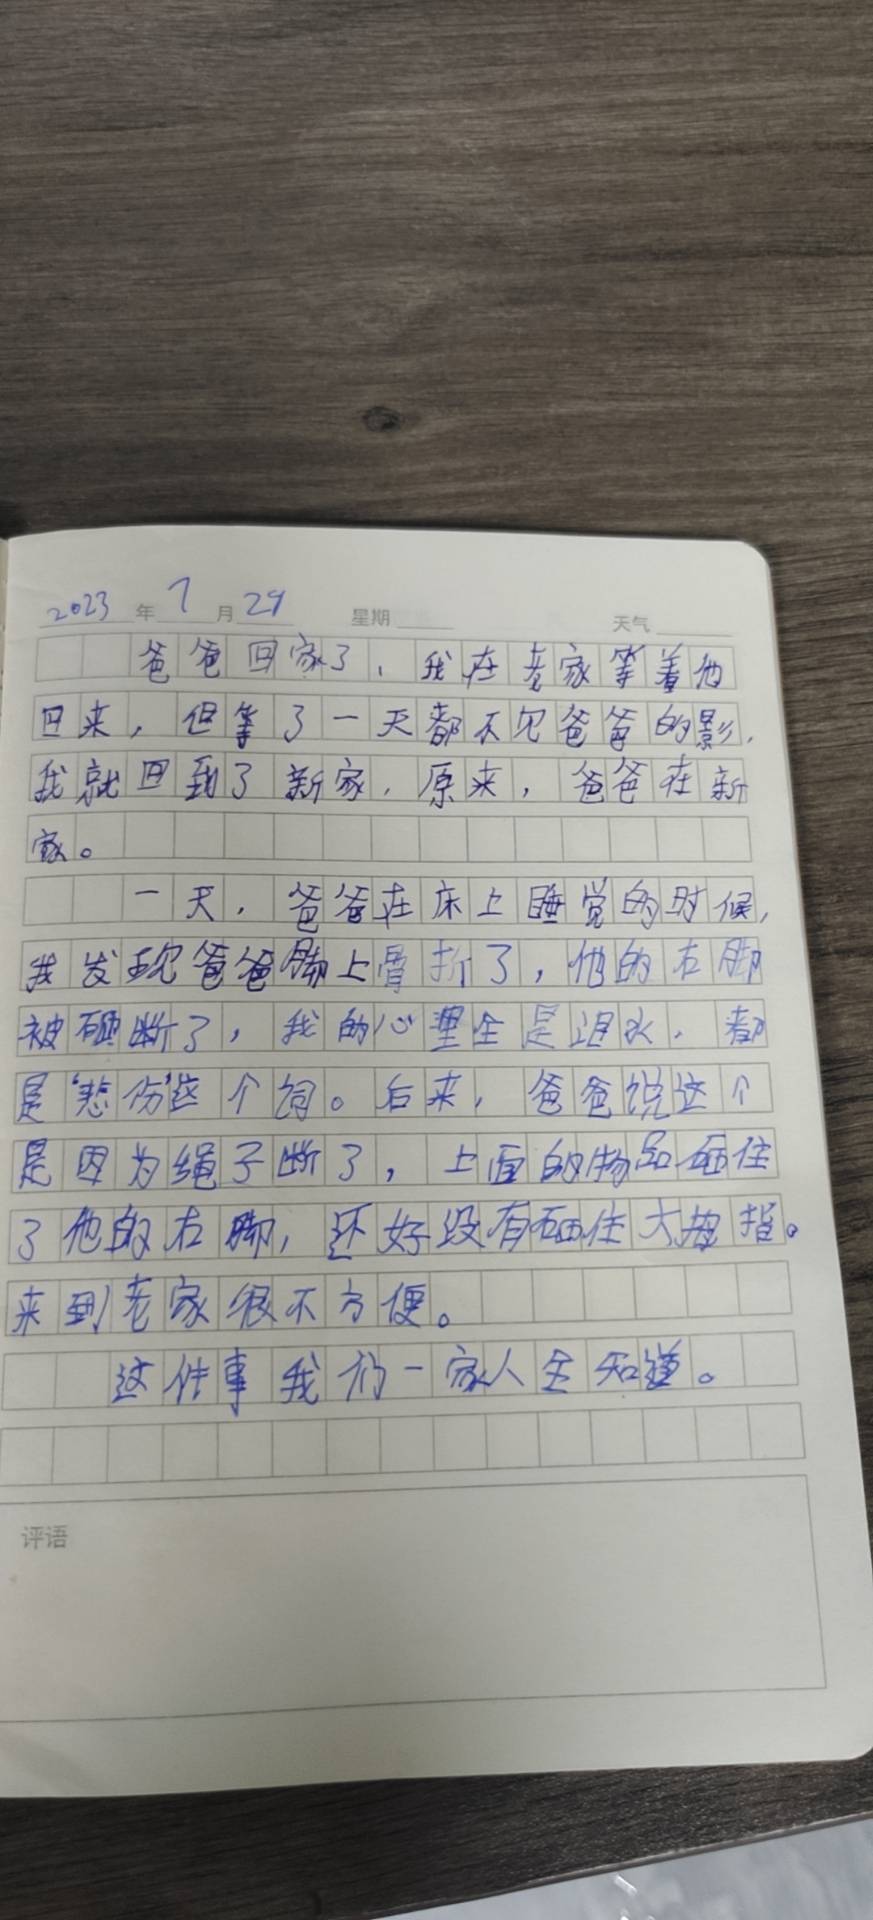 2023 年 7 月 29 星期 天气
爸爸回家了，我在老家等着他
回来，但等了一天都不见爸爸的影，
我就回到了新家，原来，爸爸在新
家。
一天，爸爸在床上睡觉的时候，
我发现爸爸脚上骨折了，他的右脚
被砸断了，我的心里全是泪水，都
是“悲伤”这个词。后来，爸爸说这个
是因为绳子断了，上面的物品砸住
了他的右脚，还好没有砸住大拇指。
来到老家很不方便。
这件事我们一家人全知道。
评语